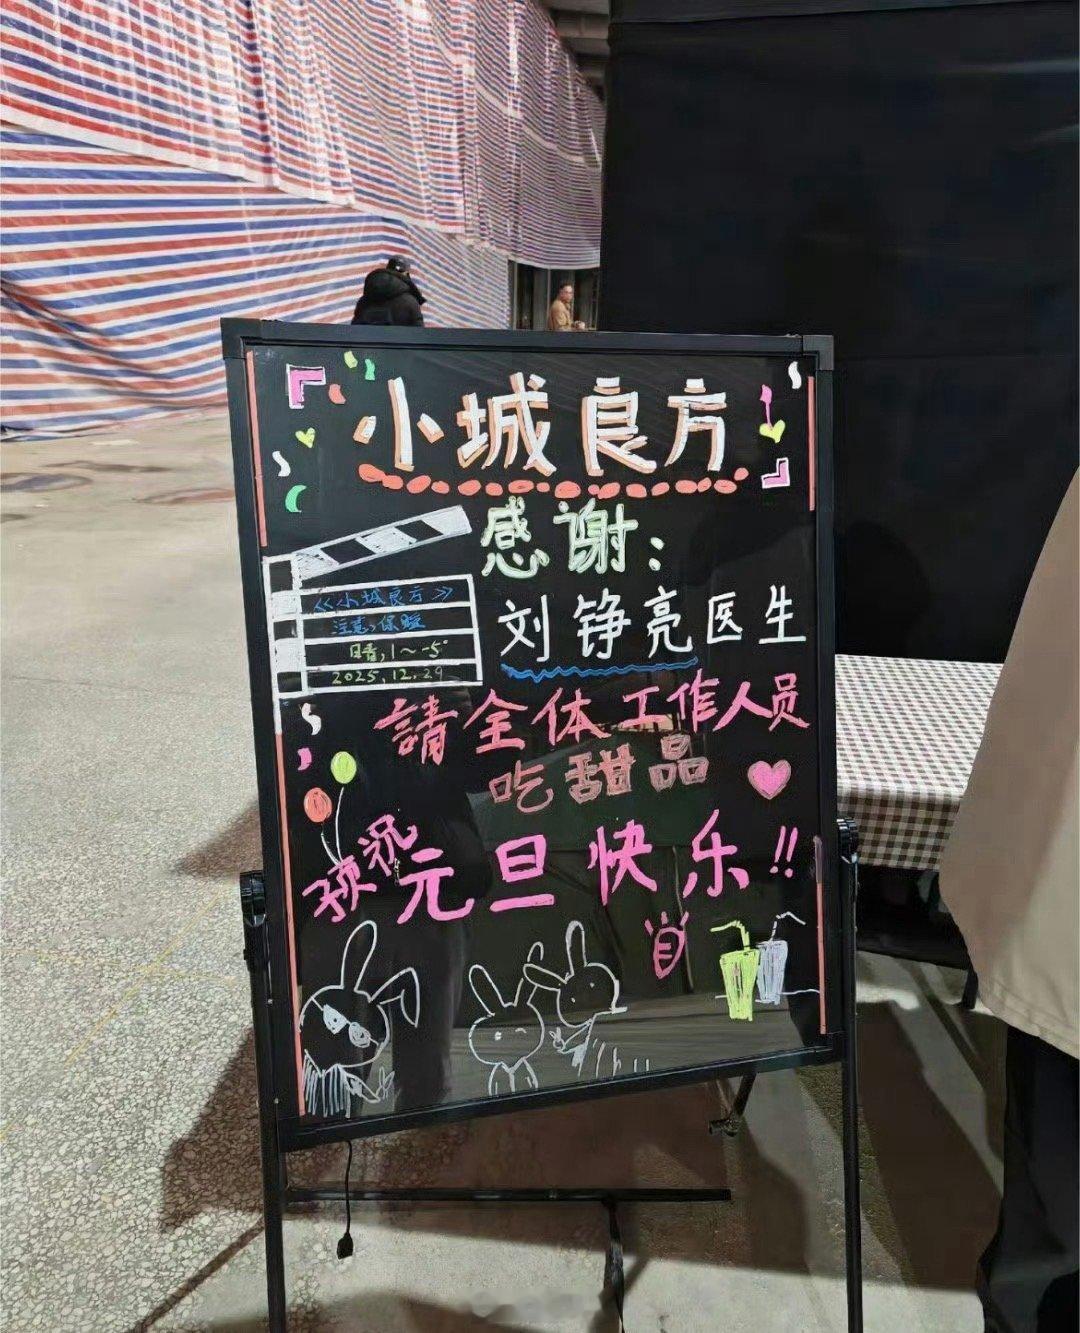 小城良方
感谢:
刘铮亮医生
《小城良方》
注意,保暖
晴,1~-5°
2025.12.29
請全体工作人员
吃甜品
预祝元旦快乐!!